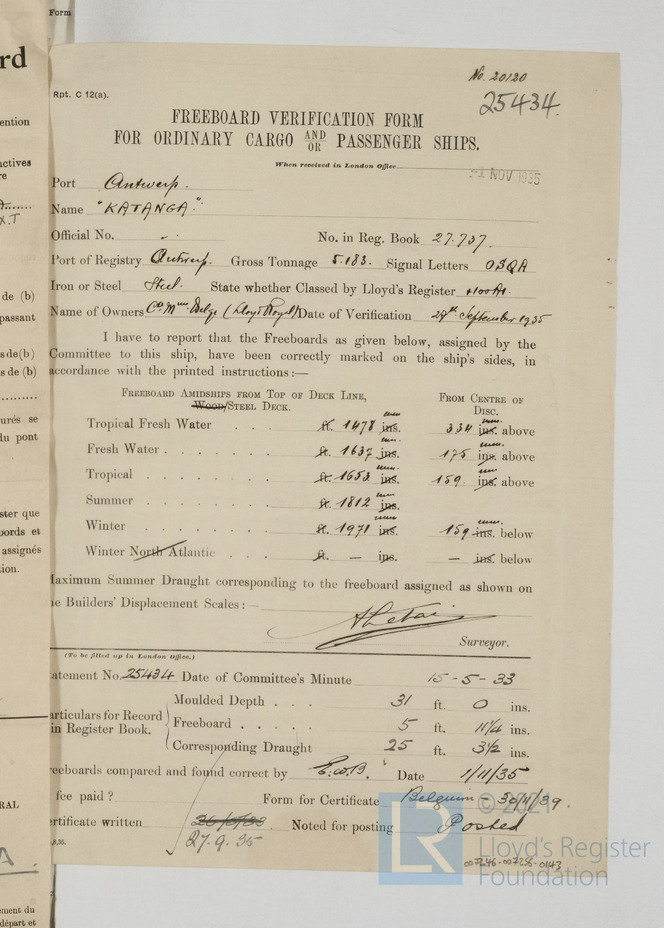 Form
No. 20120
25434.
Rpt. C 12(a).
FREEBOARD VERIFICATION FORM
FOR ORDINARY CARGO AND OR PASSENGER SHIPS.
When received in London Office
-1 NOV 1935
Port Antwerp.
Name "KATANGA".
Official No. -.
No. in Reg. Book 27.737.
Port of Registry Antwerp. Gross Tonnage 5.183. Signal Letters OBQA
Iron or Steel Steel. State whether Classed by Lloyd's Register +100A1.
Name of Owners Cie Mme Belge (Lloyd Royal) Date of Verification 24th September 1935
I have to report that the Freeboards as given below, assigned by the
Committee to this ship, have been correctly marked on the ship's sides, in
accordance with the printed instructions:—
FREEBOARD AMIDSHIPS FROM TOP OF DECK LINE,
WOOD/STEEL DECK.
FROM CENTRE OF
DISC.
Tropical Fresh Water . . . ft. 1478 ins. mm 334 ins. mm. above
Fresh Water . . . . . . . ft. 1637 ins. mm. 175 ins. mm. above
Tropical . . . . . . . ft. 1653 ins. mm. 159. ins. mm above
Summer . . . . . . . ft. 1812 ins. mm
Winter . . . . . . . ft. 1971 ins. mm 159 ins. mm. below
Winter North Atlantic . . . ft. — ins. — ins. below
Maximum Summer Draught corresponding to the freeboard assigned as shown on
the Builders' Displacement Scales:—
Surveyor.
(To be filled up in London Office.)
atement No. 25434 Date of Committee's Minute 15-5-33
articulars for Record
in Register Book.
Moulded Depth . . . 31 ft. 0 ins.
Freeboard . . . . . 5 ft. 11¼ ins.
Corresponding Draught 25 ft. 3½ ins.
reeboards compared and found correct by E.W.B. Date 1/11/35
fee paid ? Form for Certificate Belgium 30/11/39.
ertificate written Noted for posting Posted
27.9.35
© 2021
Lloyd's Register
Foundation
LR
007246-007256-0143
rd
ention
nctives
re
X.T
de (b)
passant
s de (b)
s de (b)
urés se
du pont
ster que
bords et
assignés
ion.
RAL
A
ement du
départ et